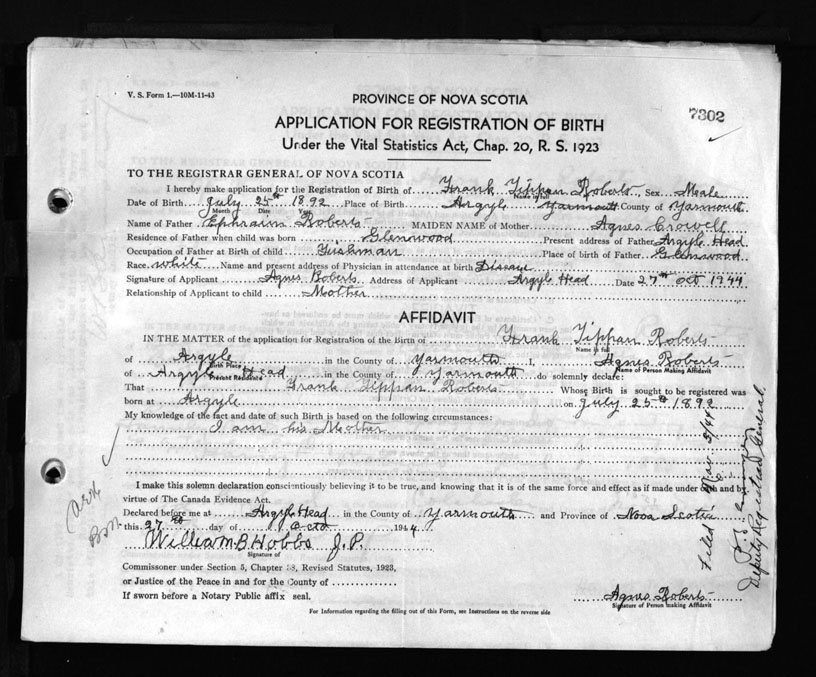 V. S. Form 1.—10M-11-43
7302
PROVINCE OF NOVA SCOTIA
APPLICATION FOR REGISTRATION OF BIRTH
Under the Vital Statistics Act, Chap. 20, R. S. 1923
TO THE REGISTRAR GENERAL OF NOVA SCOTIA
I hereby make application for the Registration of Birth of Frank Tippan Roberts, Sex Male
Name in full
Date of Birth July 25th 1892 Place of Birth Argyle Yarmouth County of Yarmouth
Month Date
Name of Father Ephraim Roberts MAIDEN NAME of Mother Agnes Crowell
Residence of Father when child was born Glenwood Present address of Father Argyle Head
Occupation of Father at Birth of child Fishman Place of birth of Father Glenwood
Race white Name and present address of Physician in attendance at birth
Signature of Applicant Agnes Roberts Address of Applicant Argyle Head Date 27th Oct 1944
Relationship of Applicant to child Mother
AFFIDAVIT
IN THE MATTER of the application for Registration of the Birth of Frank Tippan Roberts
Name in full
of Argyle in the County of Yarmouth I, Agnes Roberts
Birth Place Name of Person Making Affidavit
of Argyle Head in the County of Yarmouth do solemnly declare:
Present Residence
That Frank Tippan Roberts Whose Birth is sought to be registered was
born at Argyle on July 25th 1892
My knowledge of the fact and date of such Birth is based on the following circumstances:
I am his Mother
I make this solemn declaration conscientiously believing it to be true, and knowing that it is of the same force and effect as if made under oath and by
virtue of The Canada Evidence Act.
Declared before me at Argyle Head in the County of Yarmouth and Province of Nova Scotia
this 27th day of Octo 1944
William B Hobbs J.P.
Signature of
Commissioner under Section 5, Chapter 38, Revised Statutes, 1923,
or Justice of the Peace in and for the County of
If sworn before a Notary Public affix seal.
Agnes Roberts
Signature of Person making Affidavit
For Information regarding the filling out of this Form, see Instructions on the reverse side
Filed Nov. 3/44
Deputy Registrar General.